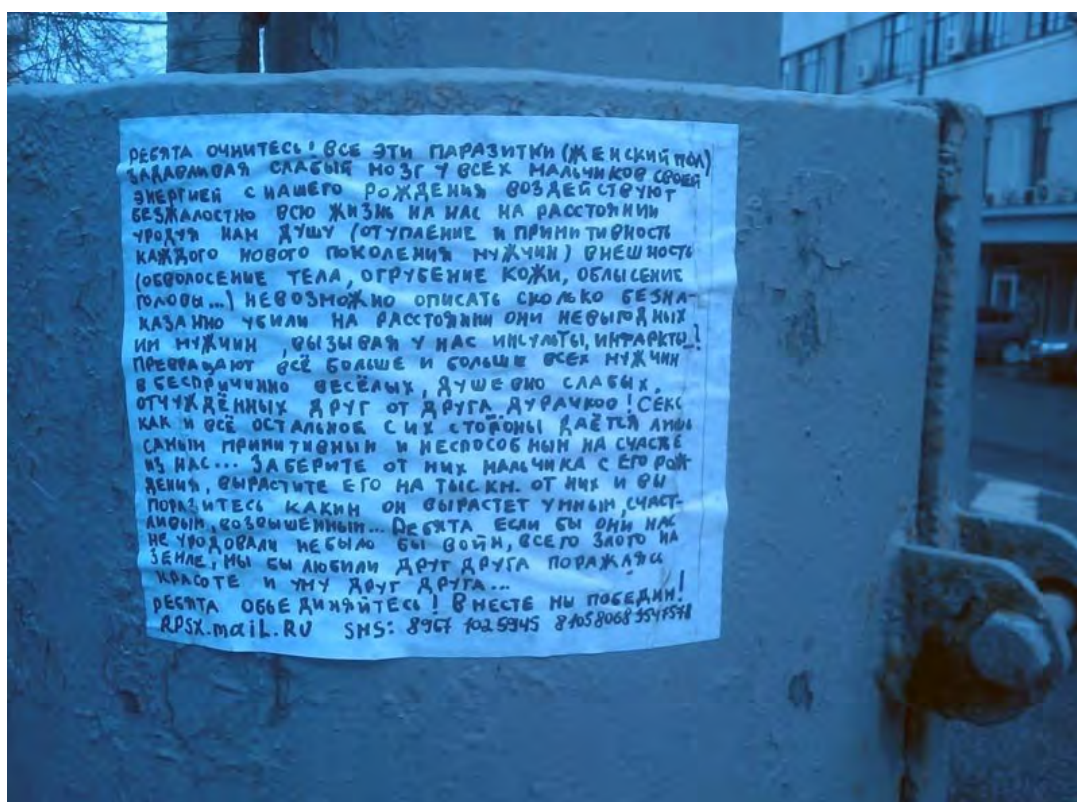 РЕБЯТА ОЧНИТЕСЬ! ВСЕ ЭТИ ПАРАЗИТКИ (ЖЕНСКИЙ ПОЛ)
ЗАДАВЛИВАЯ СЛАБЫЙ МОЗГ У ВСЕХ МАЛЬЧИКОВ СВОЕЙ
ЭНЕРГИЕЙ С НАШЕГО РОЖДЕНИЯ ВОЗДЕЙСТВУЮТ
БЕЗЖАЛОСТНО ВСЮ ЖИЗНЬ НА НАС НА РАССТОЯНИИ
УРОДУЯ НАМ ДУШУ (ОТУПЛЕНИЕ И ПРИМИТИВНОСТЬ
КАЖДОГО НОВОГО ПОКОЛЕНИЯ МУЖЧИН) ВНЕШНОСТЬ
(ОБВОЛОСЕНИЕ ТЕЛА, ОГРУБЕНИЕ КОЖИ, ОБЛЫСЕНИЕ
ГОЛОВЫ...) НЕВОЗМОЖНО ОПИСАТЬ СКОЛЬКО БЕЗНА-
КАЗАННО УБИЛИ НА РАССТОЯНИИ ОНИ НЕВЫГОДНЫХ
ИМ МУЖЧИН, ВЫЗЫВАЯ У НАС ИНСУЛЬТЫ, ИНФАРКТЫ!
ПРЕВРАЩАЮТ ВСЁ БОЛЬШЕ И БОЛЬШЕ ВСЕХ МУЖЧИН
В БЕСПРИЧИННО ВЕСЁЛЫХ, ДУШЕВНО СЛАБЫХ,
ОТЧУЖДЁННЫХ ДРУГ ОТ ДРУГА ДУРАЧКОВ! СЕКС
КАК И ВСЁ ОСТАЛЬНОЕ С ИХ СТОРОНЫ ДАЁТСЯ ЛИШЬ
САМЫМ ПРИМИТИВНЫМ И НЕСПОСОБНЫМ НА СЧАСТЬЕ
ИЗ НАС... ЗАБЕРИТЕ ОТ НИХ МАЛЬЧИКА С ЕГО РОЖ-
ДЕНИЯ, ВЫРАСТИТЕ ЕГО НА ТЫС КМ. ОТ НИХ И ВЫ
ПОРАЗИТЕСЬ КАКИМ ОН ВЫРАСТЕТ УМНЫМ, СЧАСТ-
ЛИВЫМ, ВОЗВЫШЕННЫМ... РЕБЯТА ЕСЛИ БЫ ОНИ НАС
НЕ УРОДОВАЛИ НЕБЫЛО БЫ ВОЙН, ВСЕГО ЗЛОГО НА
ЗЕМЛЕ, МЫ БЫ ЛЮБИЛИ ДРУГ ДРУГА ПОРАЖАЯСЬ
КРАСОТЕ И УМУ ДРУГ ДРУГА...
РЕБЯТА ОБЪЕДИНЯЙТЕСЬ! ВМЕСТЕ МЫ ПОБЕДИМ!
RPSX.MAIL.RU SMS: 8967 1025945